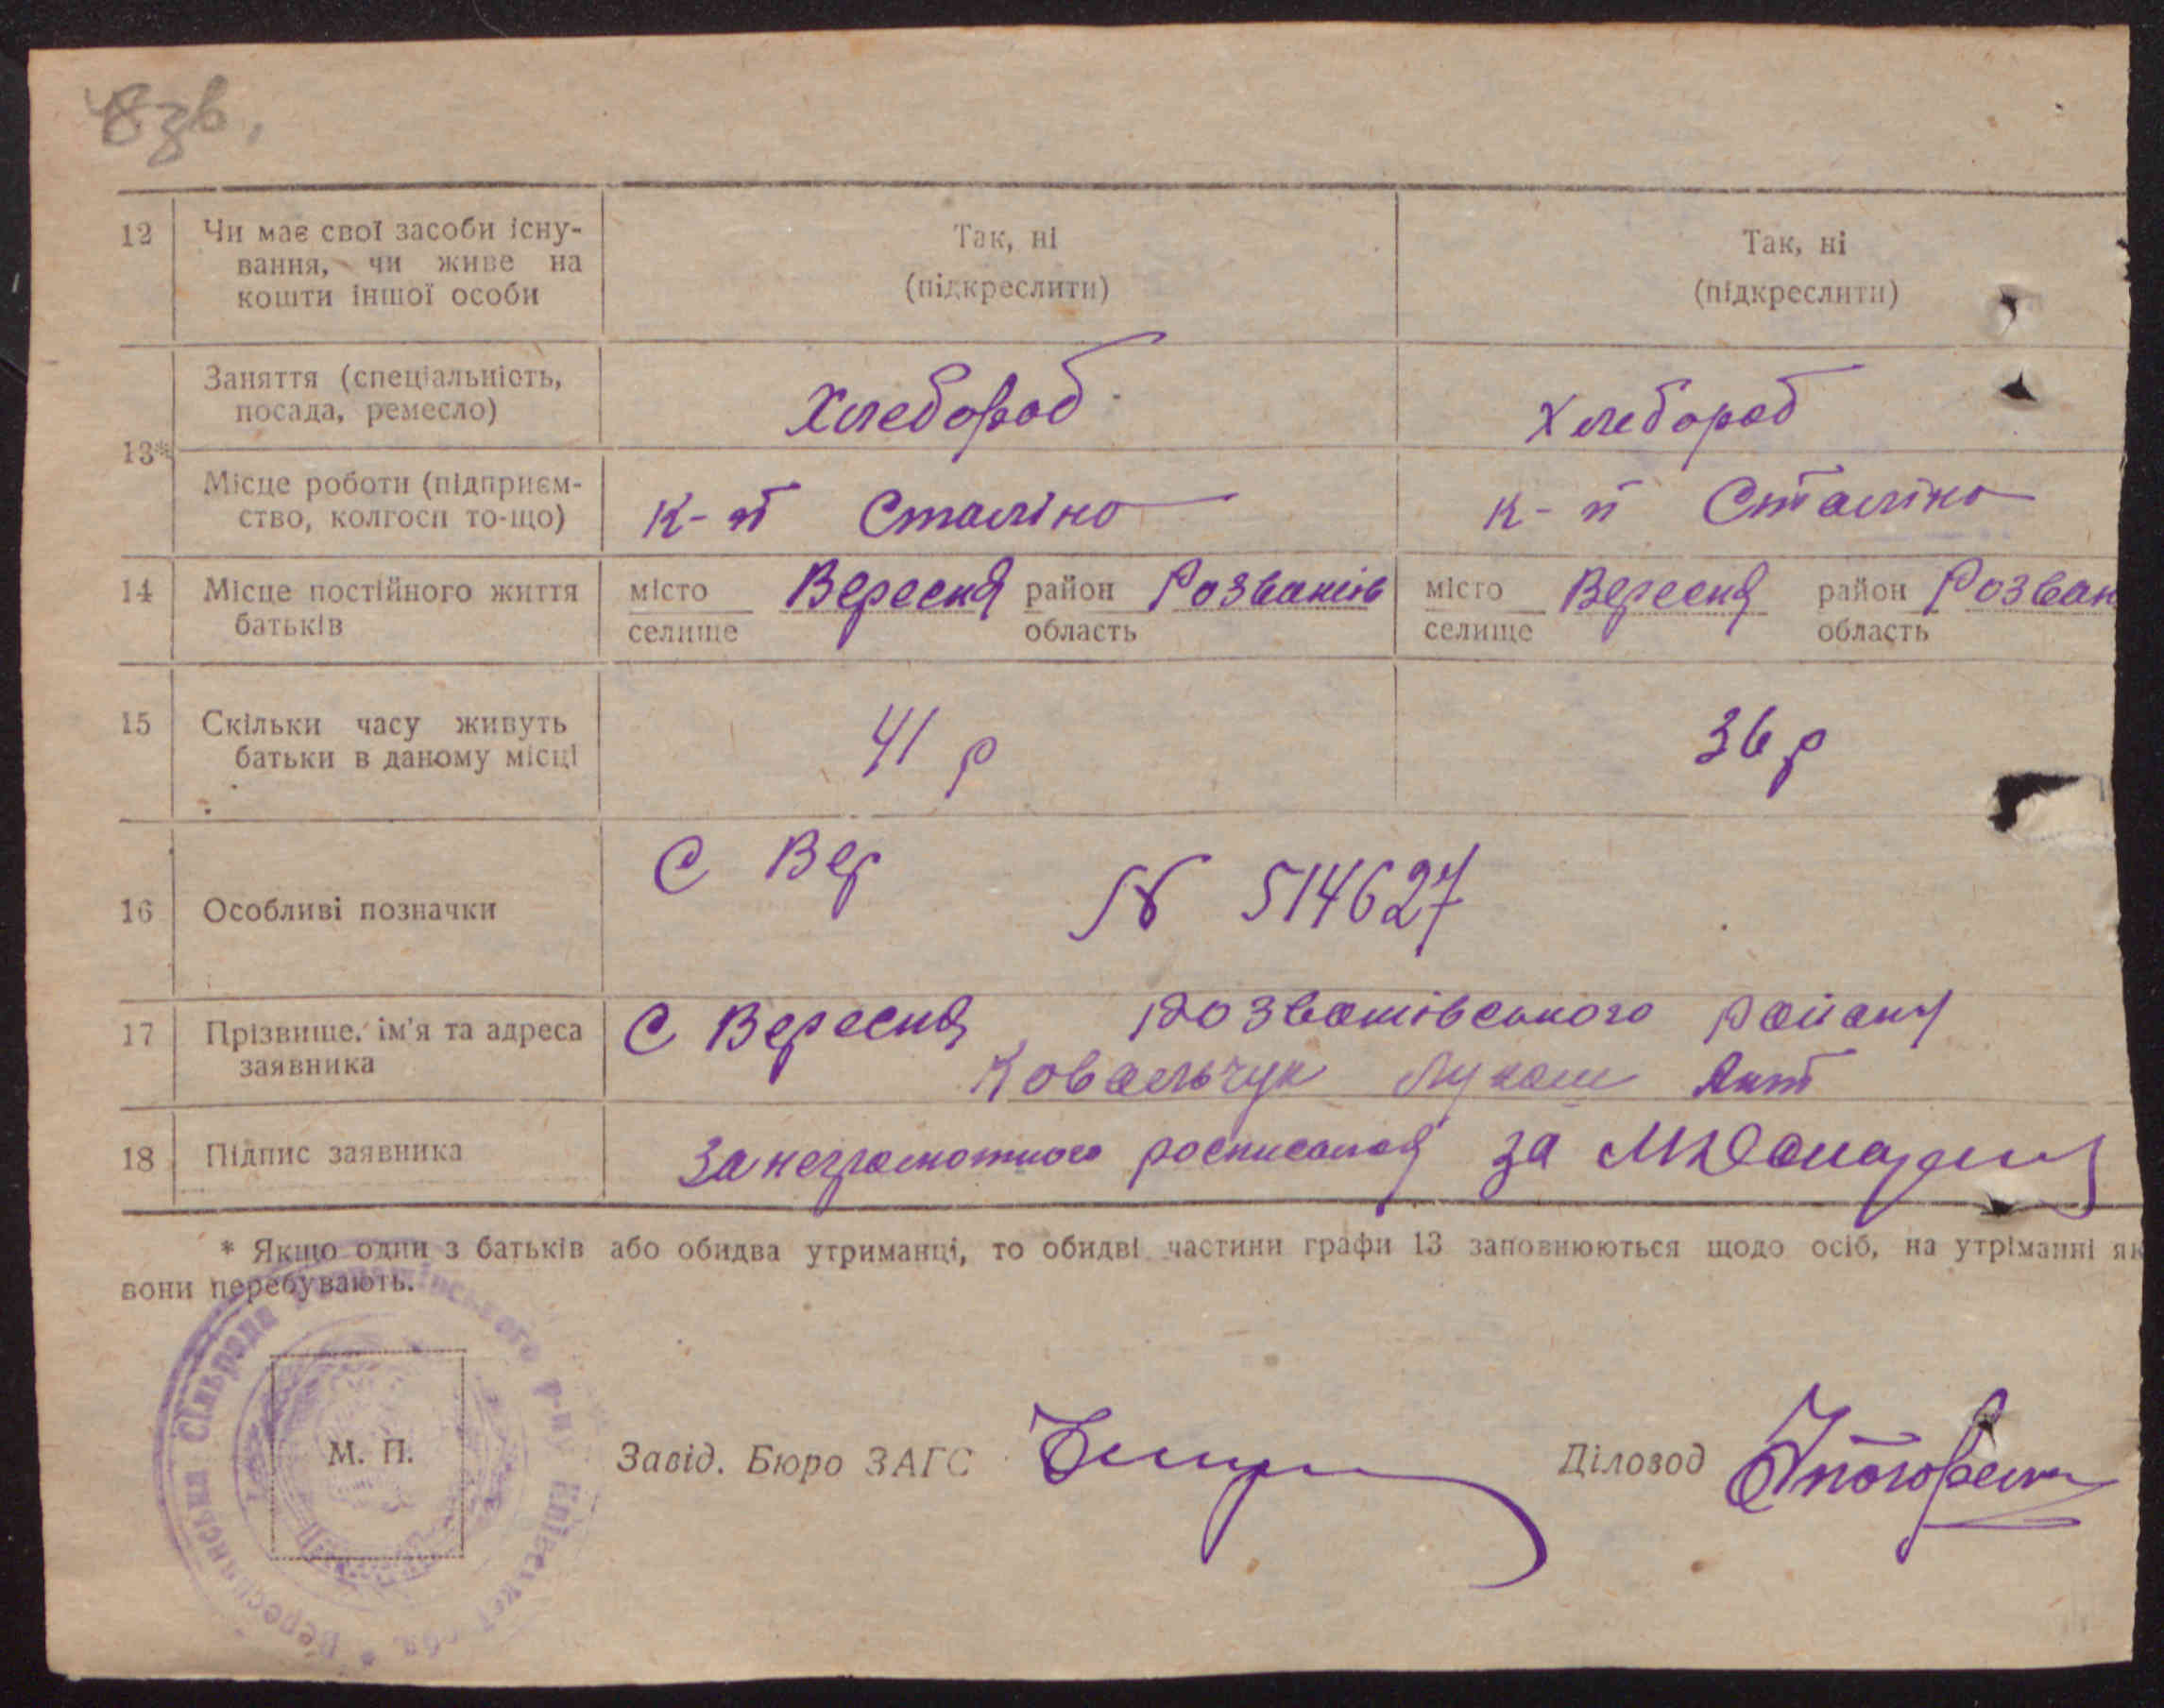 48зв.
12 Чи має свої засоби існу- Так, ні Так, ні
вання, чи живе на (підкреслити) (підкреслити)
кошти іншої особи
13* Заняття (спеціальність, Хлебороб Хлебороб
посада, ремесло)
Місце роботи (підприєм- к-п Сталіно к-п Сталіно
ство, колгосп то-що)
14 Місце постійного життя місто Вересня район Розважів місто Вересня район Розваж
батьків селище область селище область
15 Скільки часу живуть 41 р 36 р
батьки в даному місці
С Вер
16 Особливі позначки № 514627
17 Прізвище, ім'я та адреса С Вересня Розважівського району
заявника Ковальчук Лукаш Ант
18 Підпис заявника За неграмотного росписался за
* Якщо один з батьків або обидва утриманці, то обидві частини графи 13 заповнюються щодо осіб, на утріманні як
вони перебувають.
Вереснянська Сільрада Розважівського р-ну Київської обл.
М. П.
Завід. Бюро ЗАГС Діловод